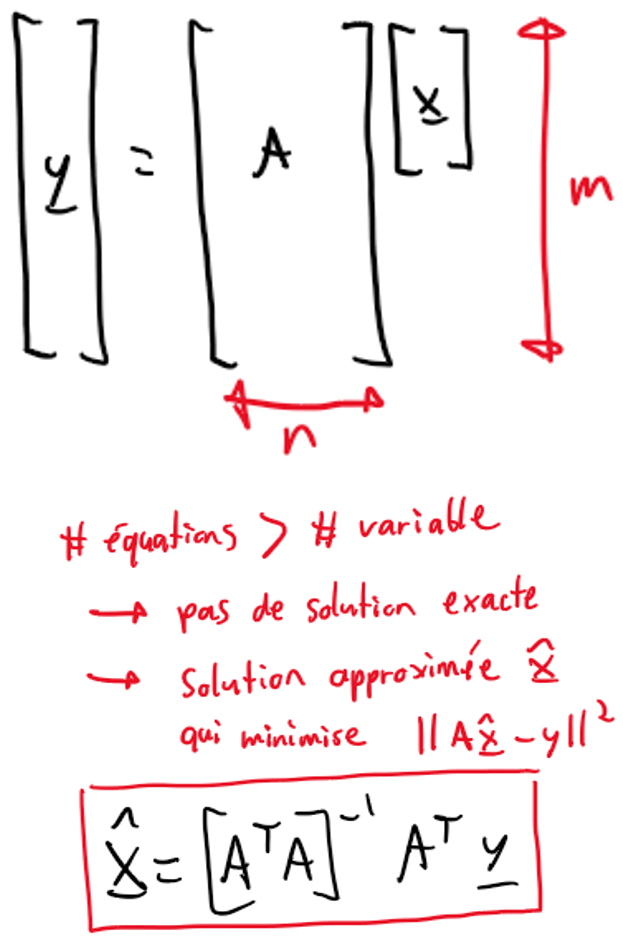 y = A x
m
n
# équations > # variable
→ pas de solution exacte
→ solution approximée x̂
qui minimise ||Ax̂-y||²
x̂ = [AᵀA]⁻¹ Aᵀ y